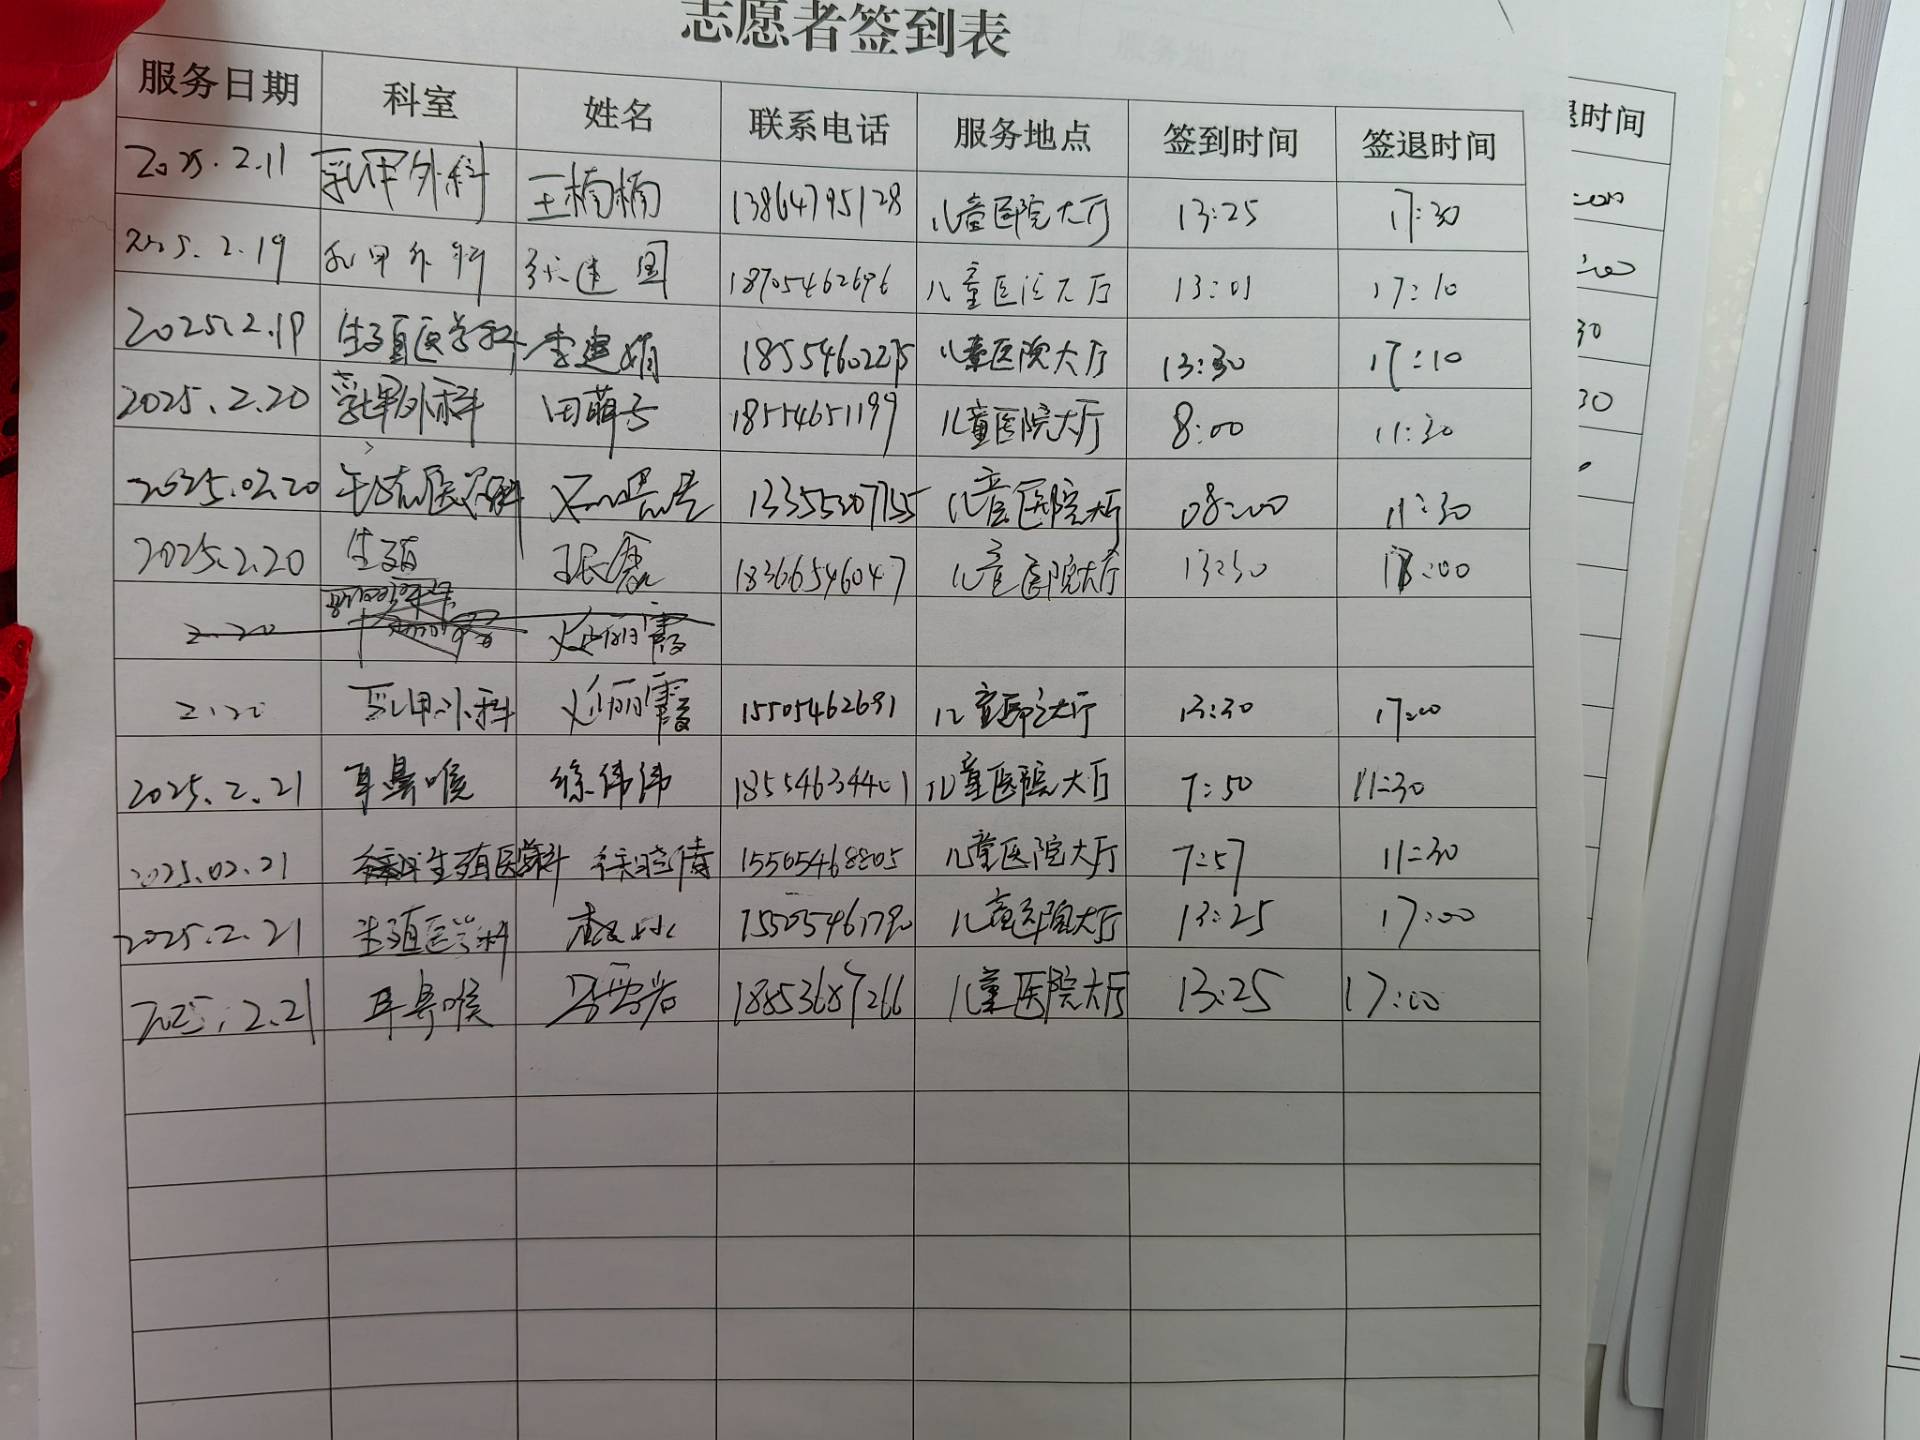 志愿者签到表
服务日期 科室 姓名 联系电话 服务地点 签到时间 签退时间
2025.2.11 乳甲外科 王楠楠 13864795128 儿童医院大厅 13:25 17:30
2025.2.19 乳甲外科 张建国 18705462696 儿童医院大厅 13:01 17:10
2025.2.19 生殖医学科 李建娟 18554602275 儿童医院大厅 13:30 17:10
2025.2.20 乳甲外科 田萌 18554651199 儿童医院大厅 8:00 11:30
2025.02.20 13355207755 儿童医院大厅 08:00 11:30
2025.2.20 生殖 张磊 18366546047 儿童医院大厅 13:30 17:00
2.20 丽霞
2.20 乳甲外科 丽霞 15505462691 儿童医院大厅 13:30 17:00
2025.2.21 耳鼻喉 徐伟伟 18554634401 儿童医院大厅 7:50 11:30
2025.02.21 生殖医学科 徐晓倩 15505468805 儿童医院大厅 7:57 11:30
2025.2.21 生殖医学科 15505461790 儿童医院大厅 13:25 17:00
2025.2.21 耳鼻喉 18853687266 儿童医院大厅 13:25 17:00
退时间
:00
:00
30
30